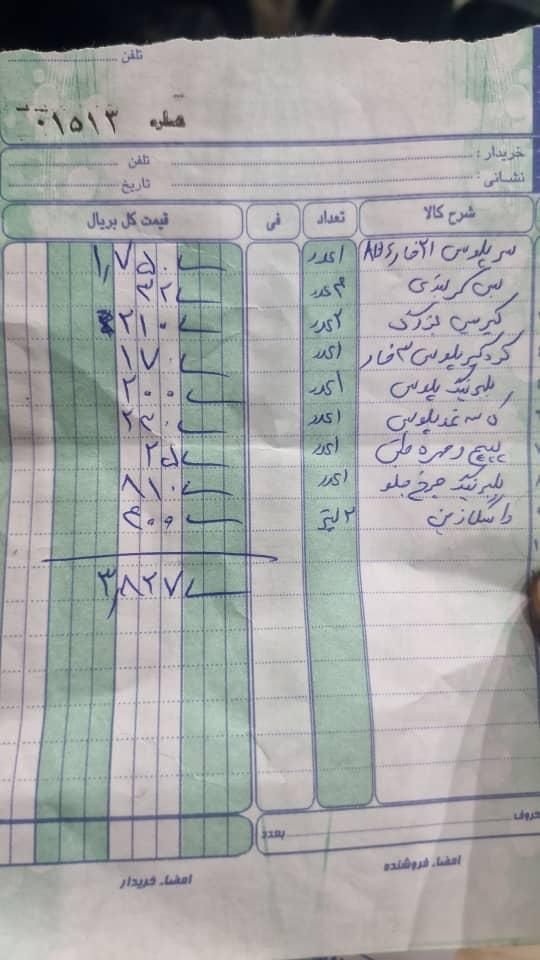 تلفن
شماره ۰۱۵۱۳
خریدار : تلفن
نشانی : تاریخ
شرح کالا تعداد فی قیمت کل بریال
سر پلوس ۲۱ خار ABS ۱ عدد ۱,۷۵۰
س کمربندی ۴ عدد ۳۲
گریس بزرگ ۲ عدد ۲۱۰
گردگیر پلوس ۳ خار ۱ عدد ۱۷۰
بلبرینگ پلوس ۱ عدد ۲۰۰
کاسه نمد پلوس ۱ عدد ۲۳۰
پیچ و مهره طبق ۱ عدد ۲۵
بلبرینگ چرخ جلو ۱ عدد ۸۱۰
واسکازین ۲ لیتر ۴۰۰
۳,۸۲۷
حروف بعدد
امضاء فروشنده امضاء خریدار